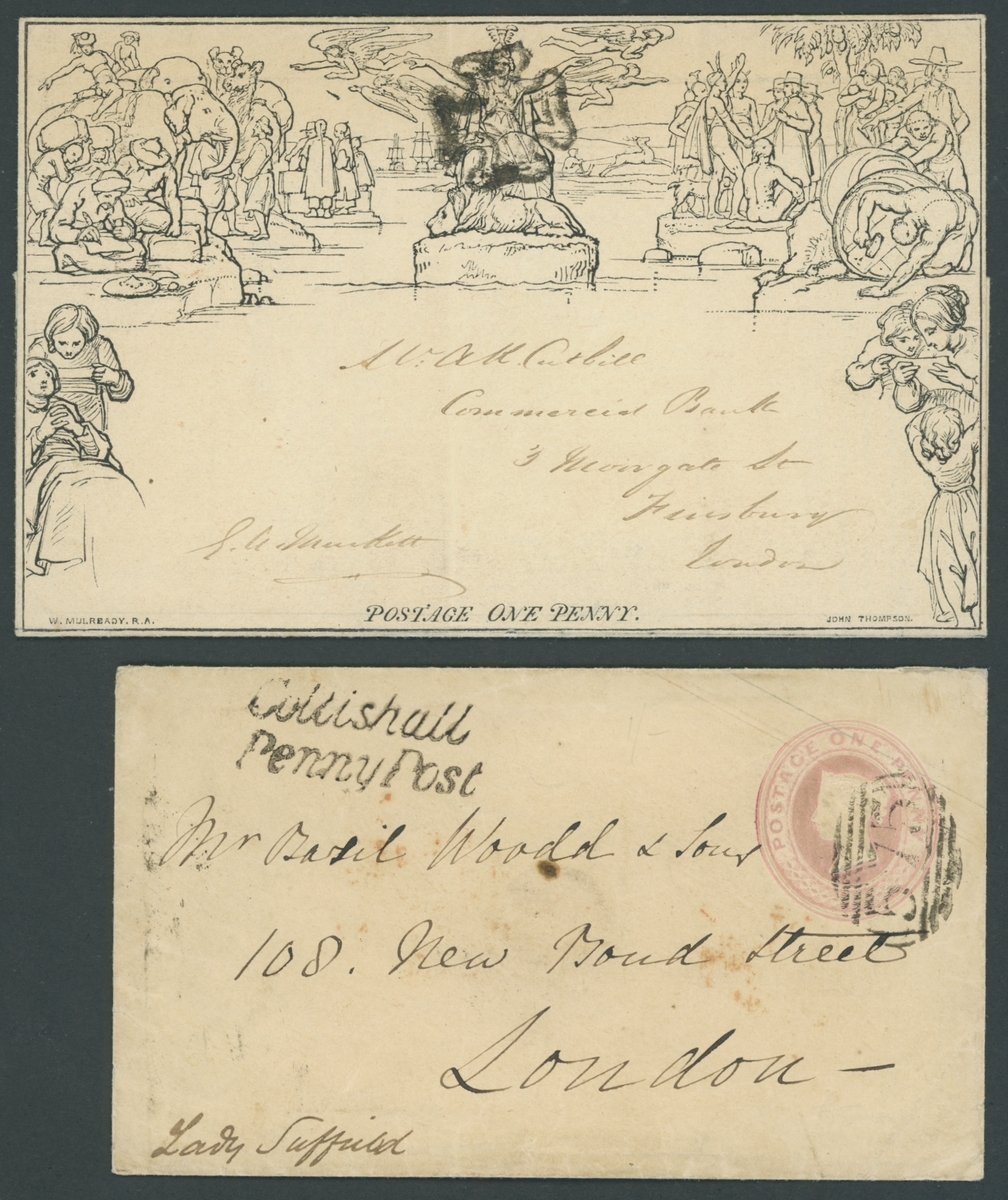 Mr A K Cutbill
Commercial Bank
3 Moorgate St
Finsbury
London
W. MULREADY. R.A.
POSTAGE ONE PENNY.
JOHN THOMPSON.
Coltishall
Penny Post
POSTAGE ONE PENNY
575
Mr Basil Woodd & Sons
108. New Bond Street
London —
Lady Suffield